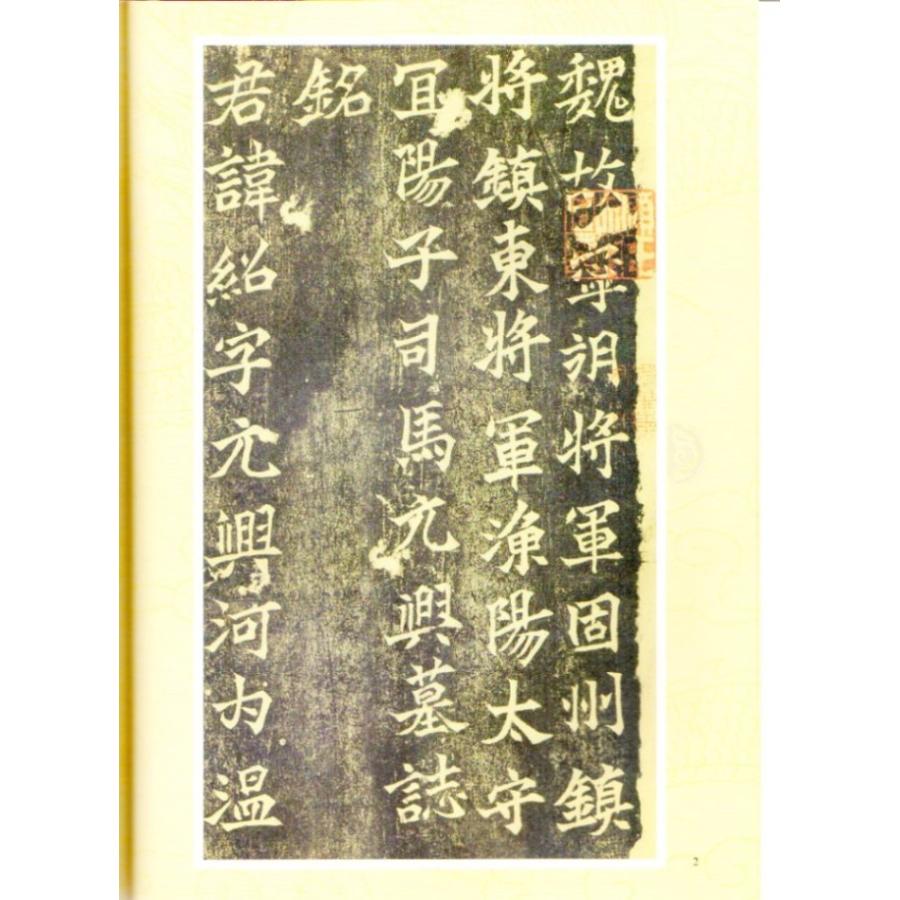 魏故寧朔將軍固州鎮
將鎮東將軍漁陽太守
宜陽子司馬元興墓誌
銘
君諱紹字元興河內溫
2